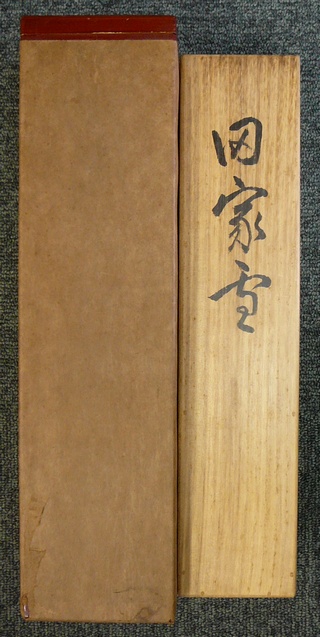 田家雪